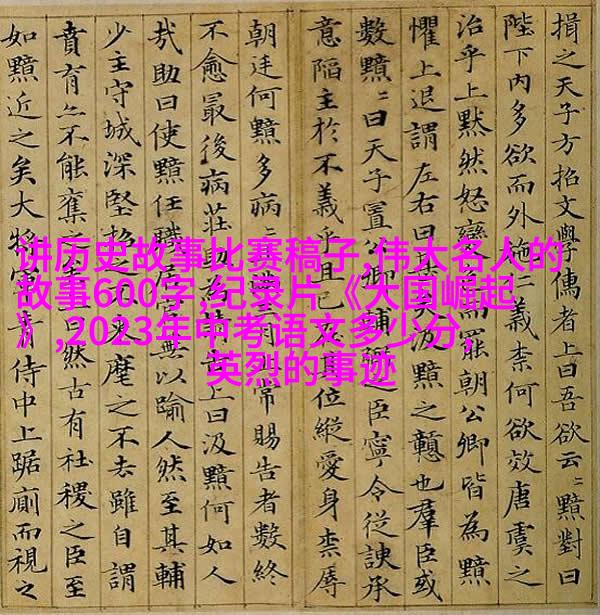 讲历史故事比赛稿子,伟大名人的
故事600字,纪录片《大国崛起
》,2023年中考语文多少分,
英烈的事迹
揖之天子方招文學儒者上曰吾欲云〻黯對曰
陛下內多欲而外施仁義柰何欲效唐虞之
治乎上默然怒變色而罷朝公卿皆為黯
懼上退謂左右曰甚矣汲黯之戇也羣臣或
數黯〻曰天子置公卿輔弼之臣寧令從諛承
意陷主於不義乎且已在其位縱愛身柰辱
朝廷何黯多病〻且滿三月上常賜告者數終
不愈最後病莊助為請告上曰汲黯何如人
㢤助曰使黯任職居官無以踰人然至其輔
少主守城深堅招之不來麾之不去雖自謂
賁育亦不能奪之矣上曰然古有社稷之臣至
如黯近之矣大將軍青侍中上踞廁而視之